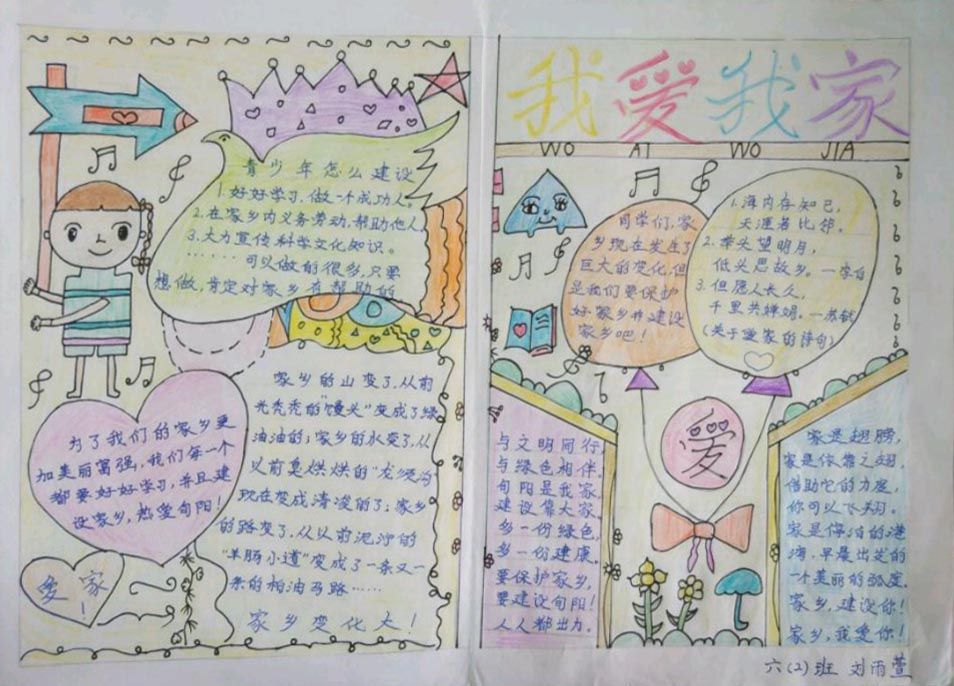 青少年怎么建设
1.好好学习,做一个成功人。
2.在家乡内义务劳动,帮助他人
3.大力宣传科学文化知识。
……可以做的很多,只要
想做,肯定对家乡有帮助的
为了我们的家乡更
加美丽富强,我们每一个
都要好好学习,并且建
设家乡,热爱旬阳!
爱家!
家乡的山变了,从前
光秃秃的"馒头"变成了绿
油油的;家乡的水变了,从
以前臭烘烘的"龙须沟
现在变成清凌的了;家乡
的路变了,从以前泥泞的
"羊肠小道"变成了一条又一
条的柏油马路……
家乡变化大!
我爱我家
WO AI WO JIA
同学们,家
乡现在发生了
巨大的变化,但
是我们要保护
好家乡并建设
家乡吧!
1.海内存知己,
天涯若比邻。
2.举头望明月,
低头思故乡。—李白
3.但愿人长久,
千里共婵娟。—苏轼
(关于爱家的诗句)
爱
与文明同行,
与绿色相伴。
旬阳是我家,
建设靠大家。
多一份绿色,
多一份健康。
要保护家乡,
要建设旬阳!
人人都出力。
家是翅膀,
借助它的力度,
你可以飞翔。
家是停泊的港
湾,早晨出发的
一个美丽的弧度。
家乡,建设你!
家乡,我爱你!
六(2)班 刘雨萱